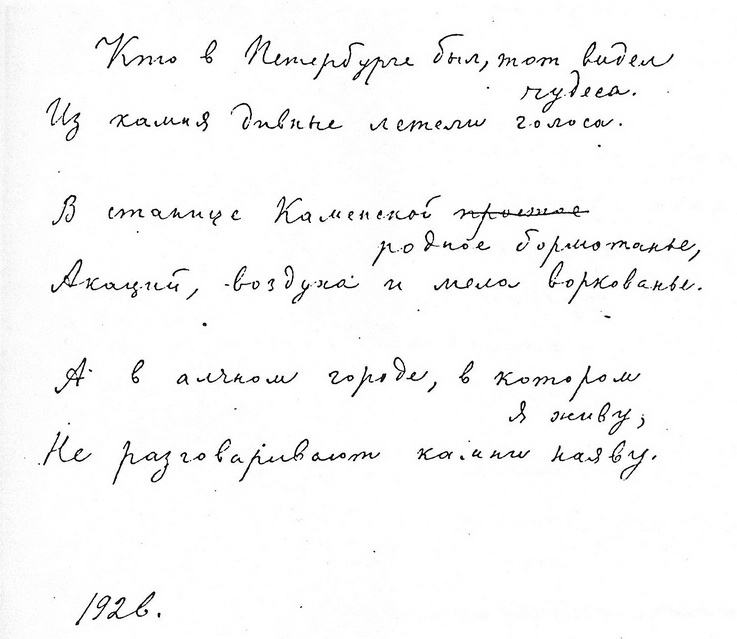 Кто в Петербурге был, тот видел
чудеса.
Из камня дивные летели голоса.
В станице Каменской простое
родное бормотанье,
Акаций, воздуха и мела воркованье.
А в алчном городе, в котором
я живу,
Не разговаривают камни наяву.
1926.